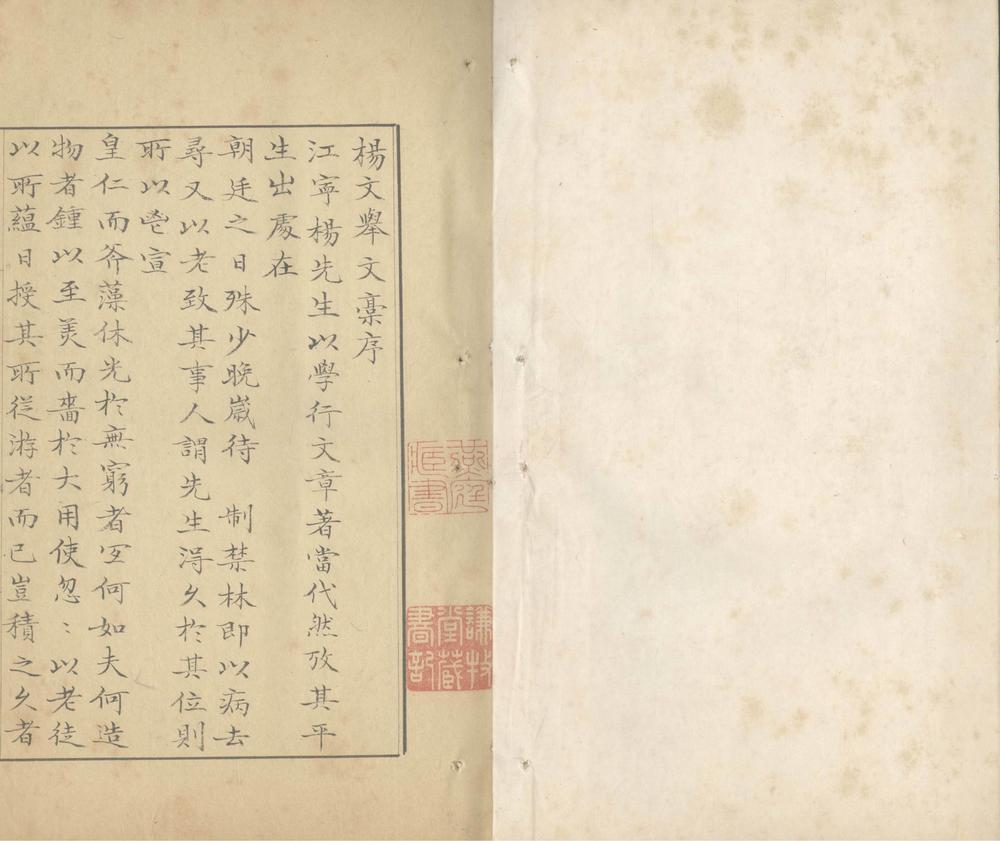 楊文舉文稾序
江寜楊先生以學行文章著當代然攷其平
生出處在
朝廷之日殊少晚嵗待 制禁林即以病去
尋又以老致其事人謂先生淂久於其位則
所以宣
皇仁而斧藻休光於無窮者宜何如夫何造
物者鍾以至羙而嗇於大用使忽〻以老徒
以所蘊日授其所從游者而已豈積之久者
燕庭
藏書
謙牧
堂藏
書記